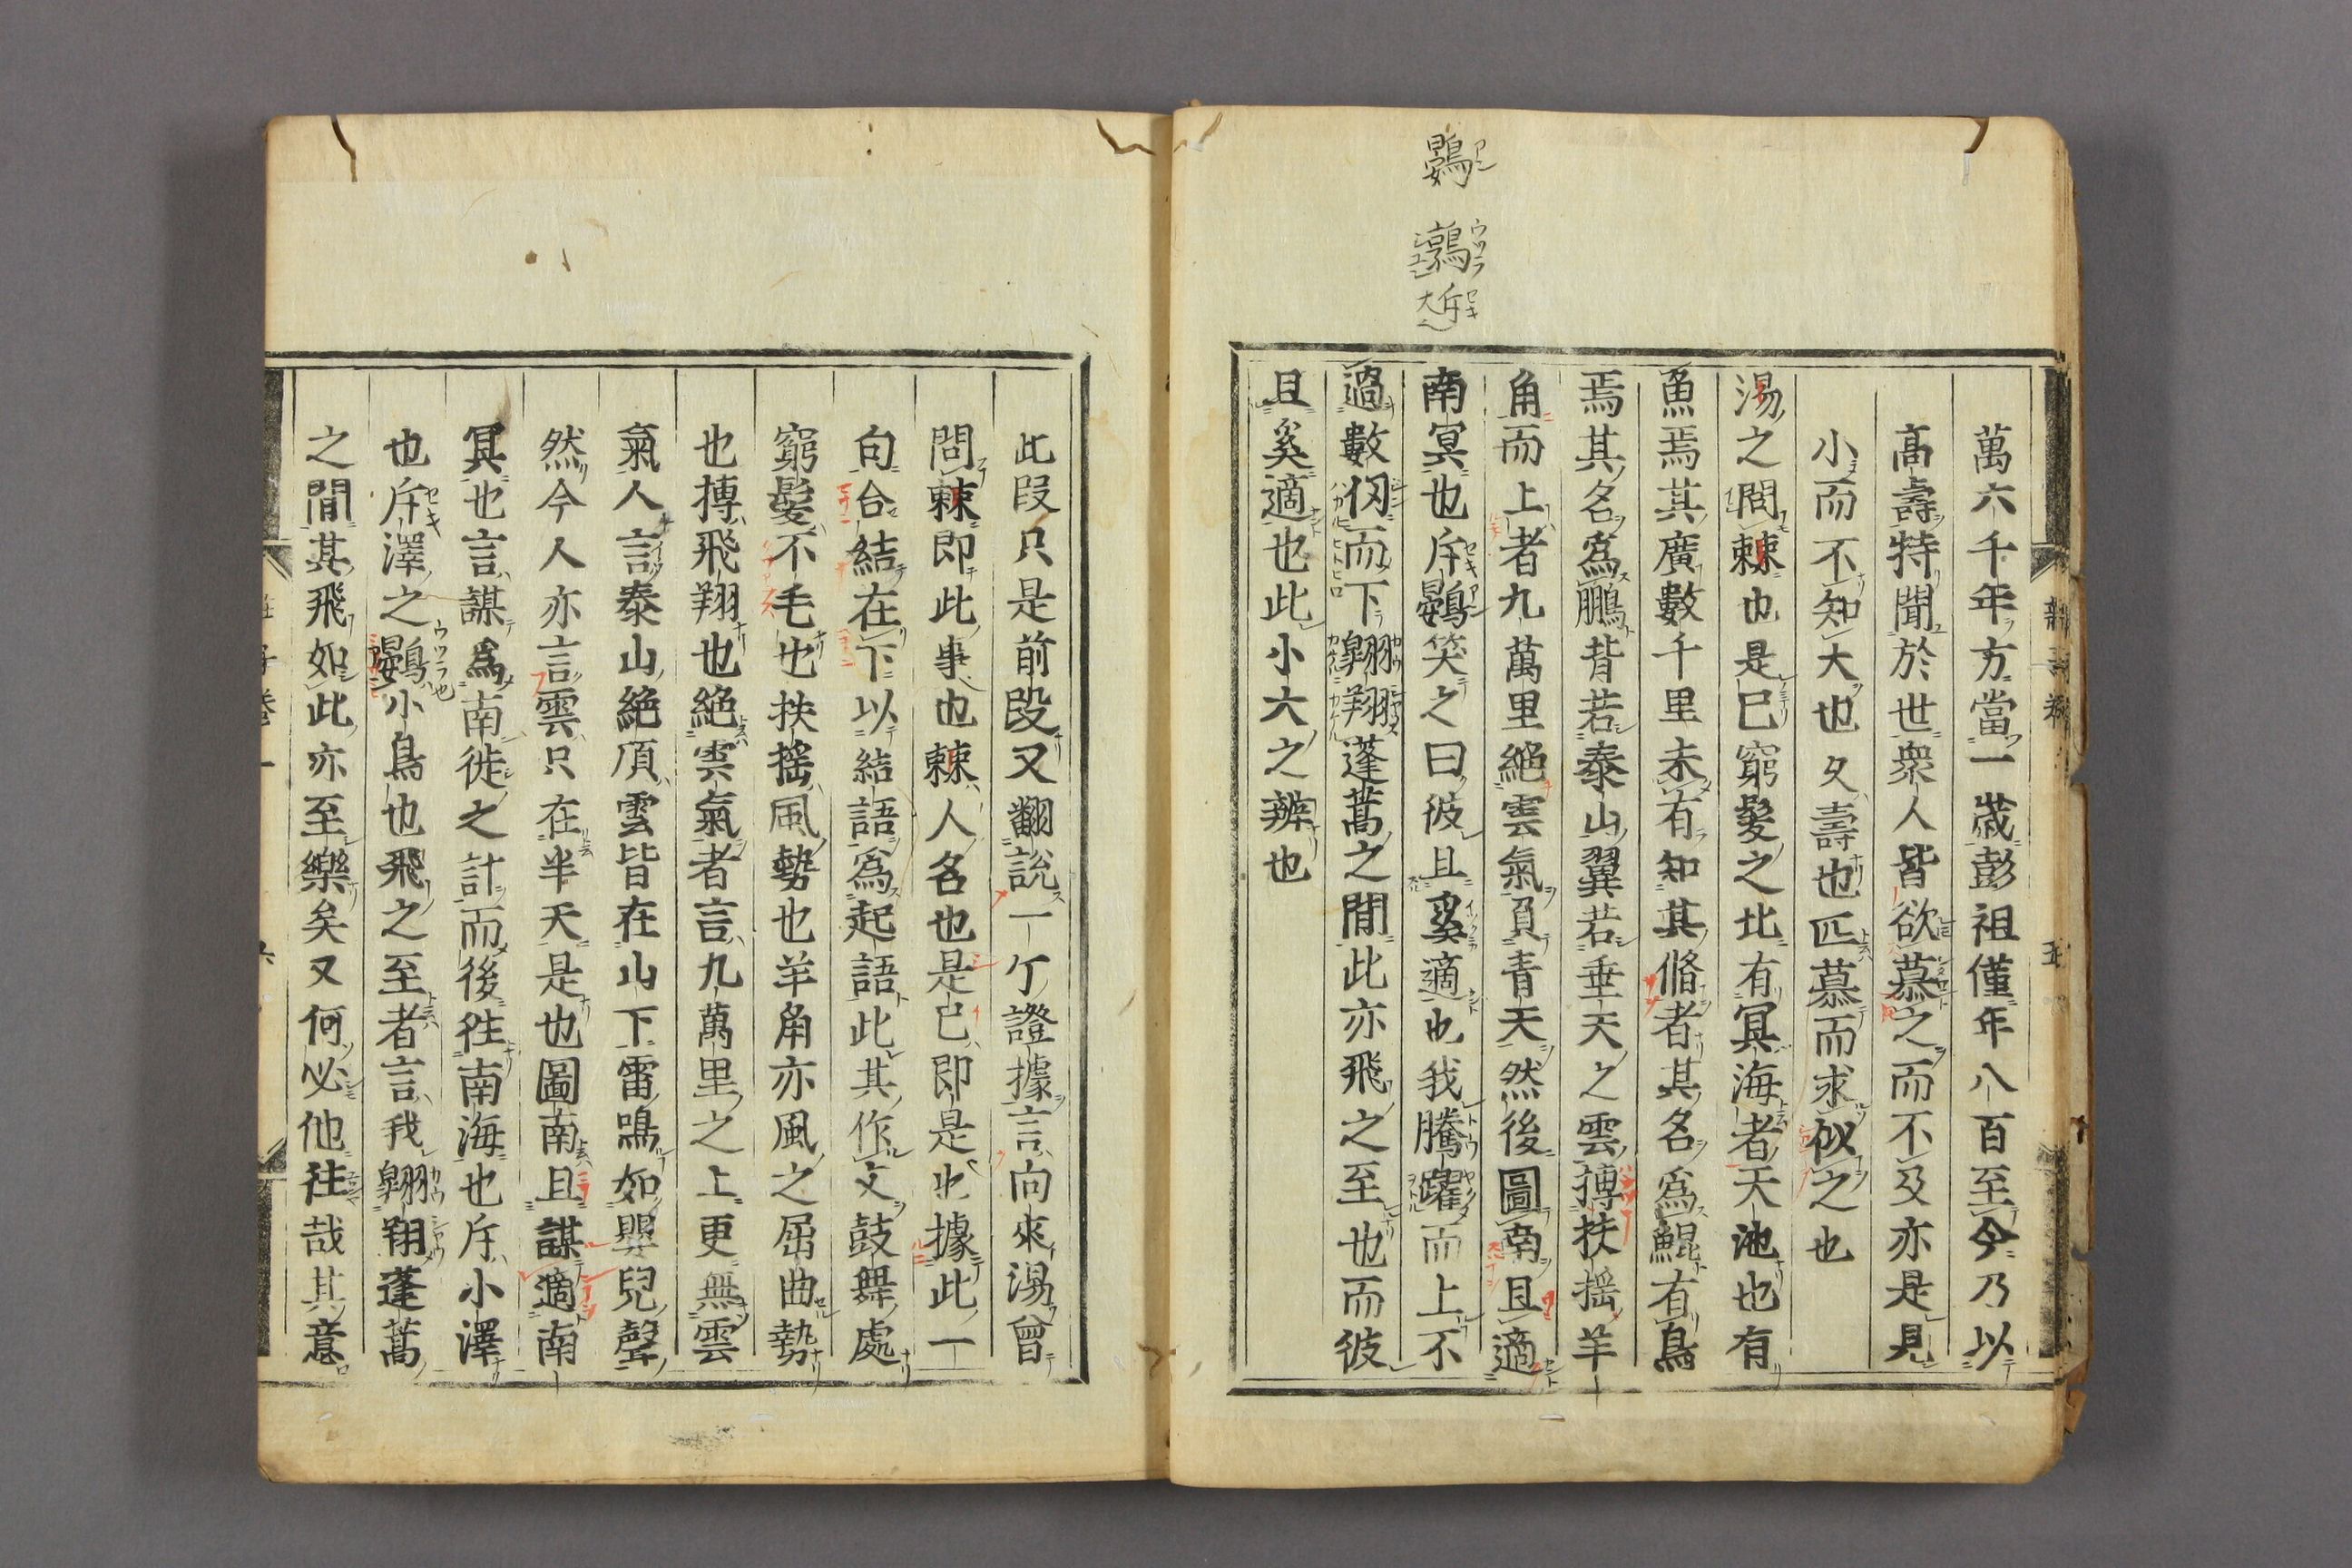 萬六千年方當一歲彭祖僅年八百至今乃以
高壽特聞於世衆人皆欲慕之而不及亦是見
小而不知大也久壽也匹慕而求似之也
湯之問棘也是已窮髮之北有冥海者天池也有
魚焉其廣數千里未有知其脩者其名爲鯤有鳥
焉其名爲鵬背若泰山翼若垂天之雲摶扶搖羊
角而上者九萬里絕雲氣負青天然後圖南且適
南冥也斥鷃笑之曰彼且奚適也我騰躍而上不
過數仞而下翺翔蓬蒿之間此亦飛之至也而彼
且奚適也此小大之辨也
鷃
鶉
斥
此段只是前段又翻說一个證據言向來湯曾
問棘即此事也棘人名也是已即是也據此一
句合結在下以結語爲起語此其作文鼓舞處
窮髮不毛也扶搖風勢也羊角亦風之屈曲勢
也摶飛翔也絕雲氣者言九萬里之上更無雲
氣人言泰山絕頂雲皆在山下雷鳴如嬰兒聲
然今人亦言雲只在半天是也圖南且謀適南
冥也言謀爲南徙之計而後徃南海也斥小澤
也斥澤之鷃小鳥也飛之至者言我翺翔蓬蒿
之間其飛如此亦至樂矣又何必他徃哉其意